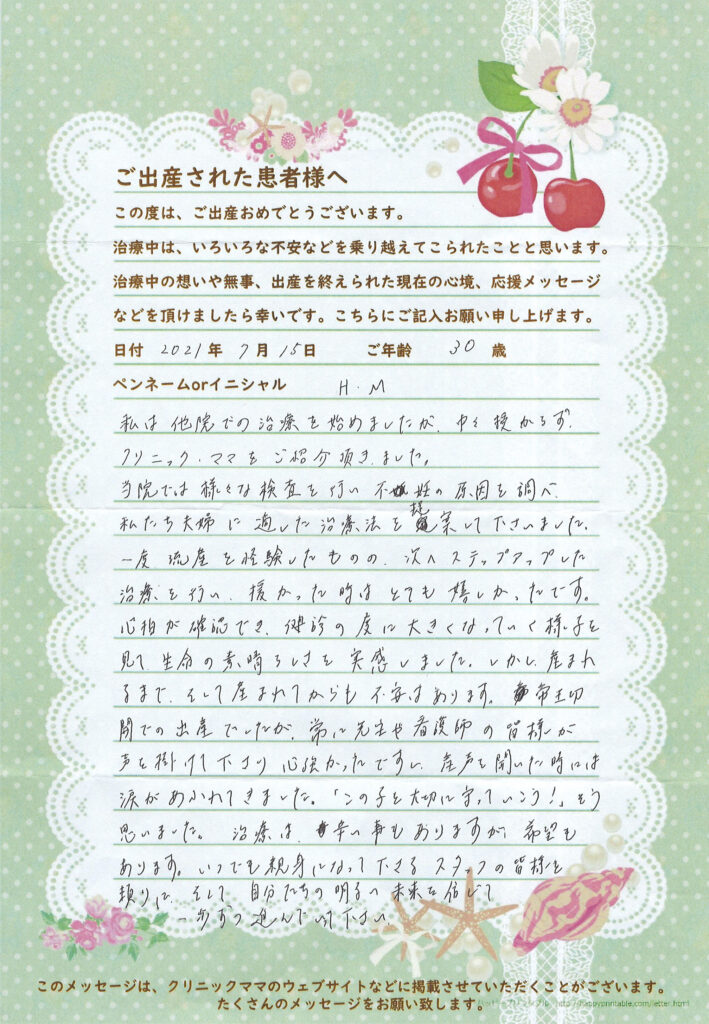 ご出産された患者様へ
この度は、ご出産おめでとうございます。
治療中は、いろいろな不安などを乗り越えてこられたことと思います。
治療中の想いや無事、出産を終えられた現在の心境、応援メッセージ
などを頂けましたら幸いです。こちらにご記入お願い申し上げます。
日付 2021年 7月 15日 ご年齢 30 歳
ペンネームorイニシャル H・M
私は他院での治療を始めましたが、中々授からず、
クリニック・ママをご紹介頂きました。
当院では様々な検査を行い不妊の原因を調べ、
私たち夫婦に適した治療法を提案して下さいました。
一度流産を経験したものの、次へステップアップした
治療を行い、授かった時はとても嬉しかったです。
心拍が確認でき、健診の度に大きくなっていく様子を
見て生命の素晴らしさを実感しました。しかし、産まれ
るまで、そして産まれてからも不安はあります。帝王切
開での出産でしたが、常に先生や看護師の皆様が
声を掛けて下さり心強かったですし、産声を聞いた時には
涙があふれてきました。「この子を大切に守っていこう!」そう
思いました。治療は、辛い事もありますが希望も
あります。いつでも親身になって下さるスタッフの皆様を
頼りに、そして、自分たちの明るい未来を信じて
一歩ずつ進んで下さい
このメッセージは、クリニックママのウェブサイトなどに掲載させていただくことがございます。
たくさんのメッセージをお願い致します。
http://happyprintable.com/letter.html